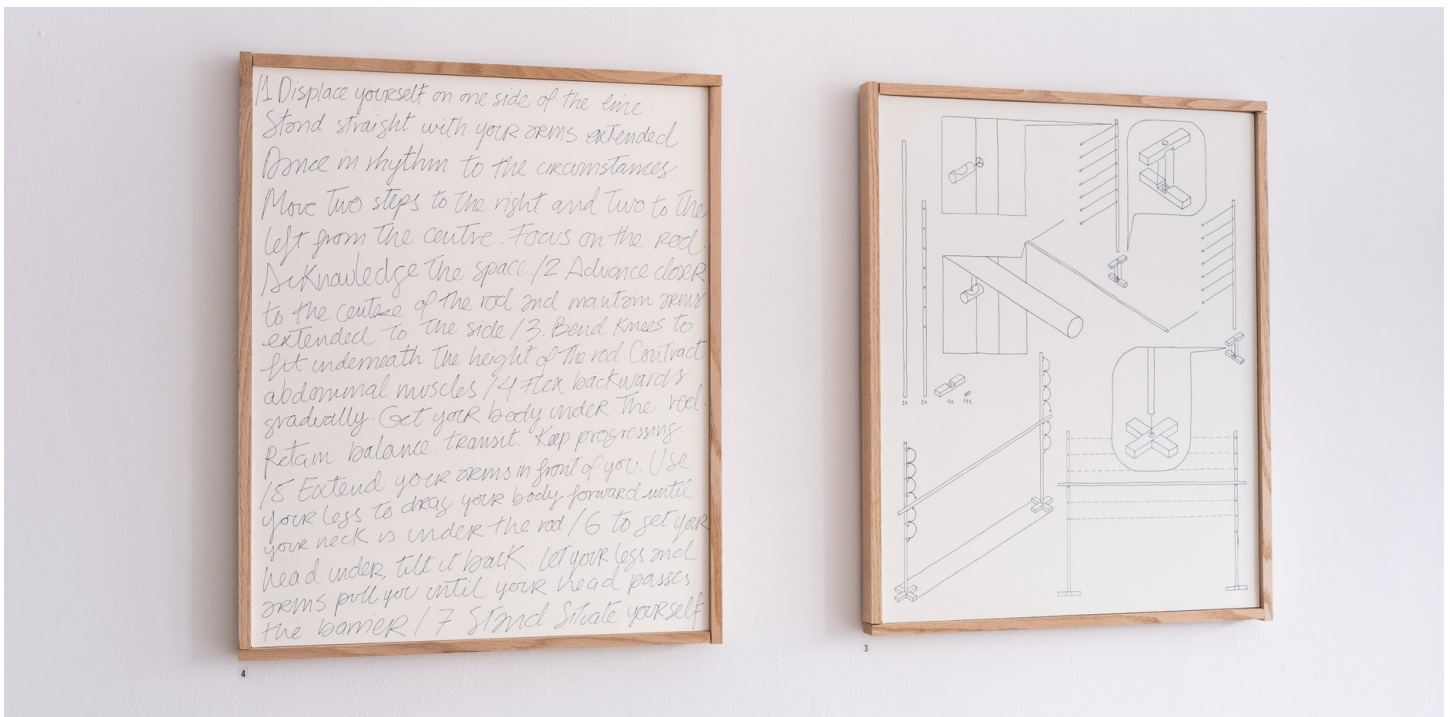 /1 Displace yourself on one side of the line.
Stand straight with your arms extended.
Dance in rhythm to the circumstances.
Move two steps to the right and two to the
left from the centre. Focus on the rod.
Acknowledge the space /2 Advance closer
to the centre of the rod and mantain arms
extended to the side /3. Bend knees to
fit underneath the height of the rod. Contract
abdominal muscles /4 Flex backwards
gradually. Get your body under the rod.
Retain balance. transit. Keep progressing
/5 Extend your arms in front of you. Use
your legs to drag your body forward until
your neck is under the rod /6 to get your
head under, tilt it back. let your legs and
arms pull you until your head passes
the barrier /7 Stand. Situate yourself
4
3